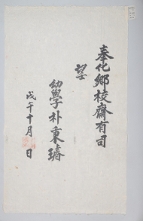 奉化鄕校齋有司
望
幼學朴東璹
戊午十月 日